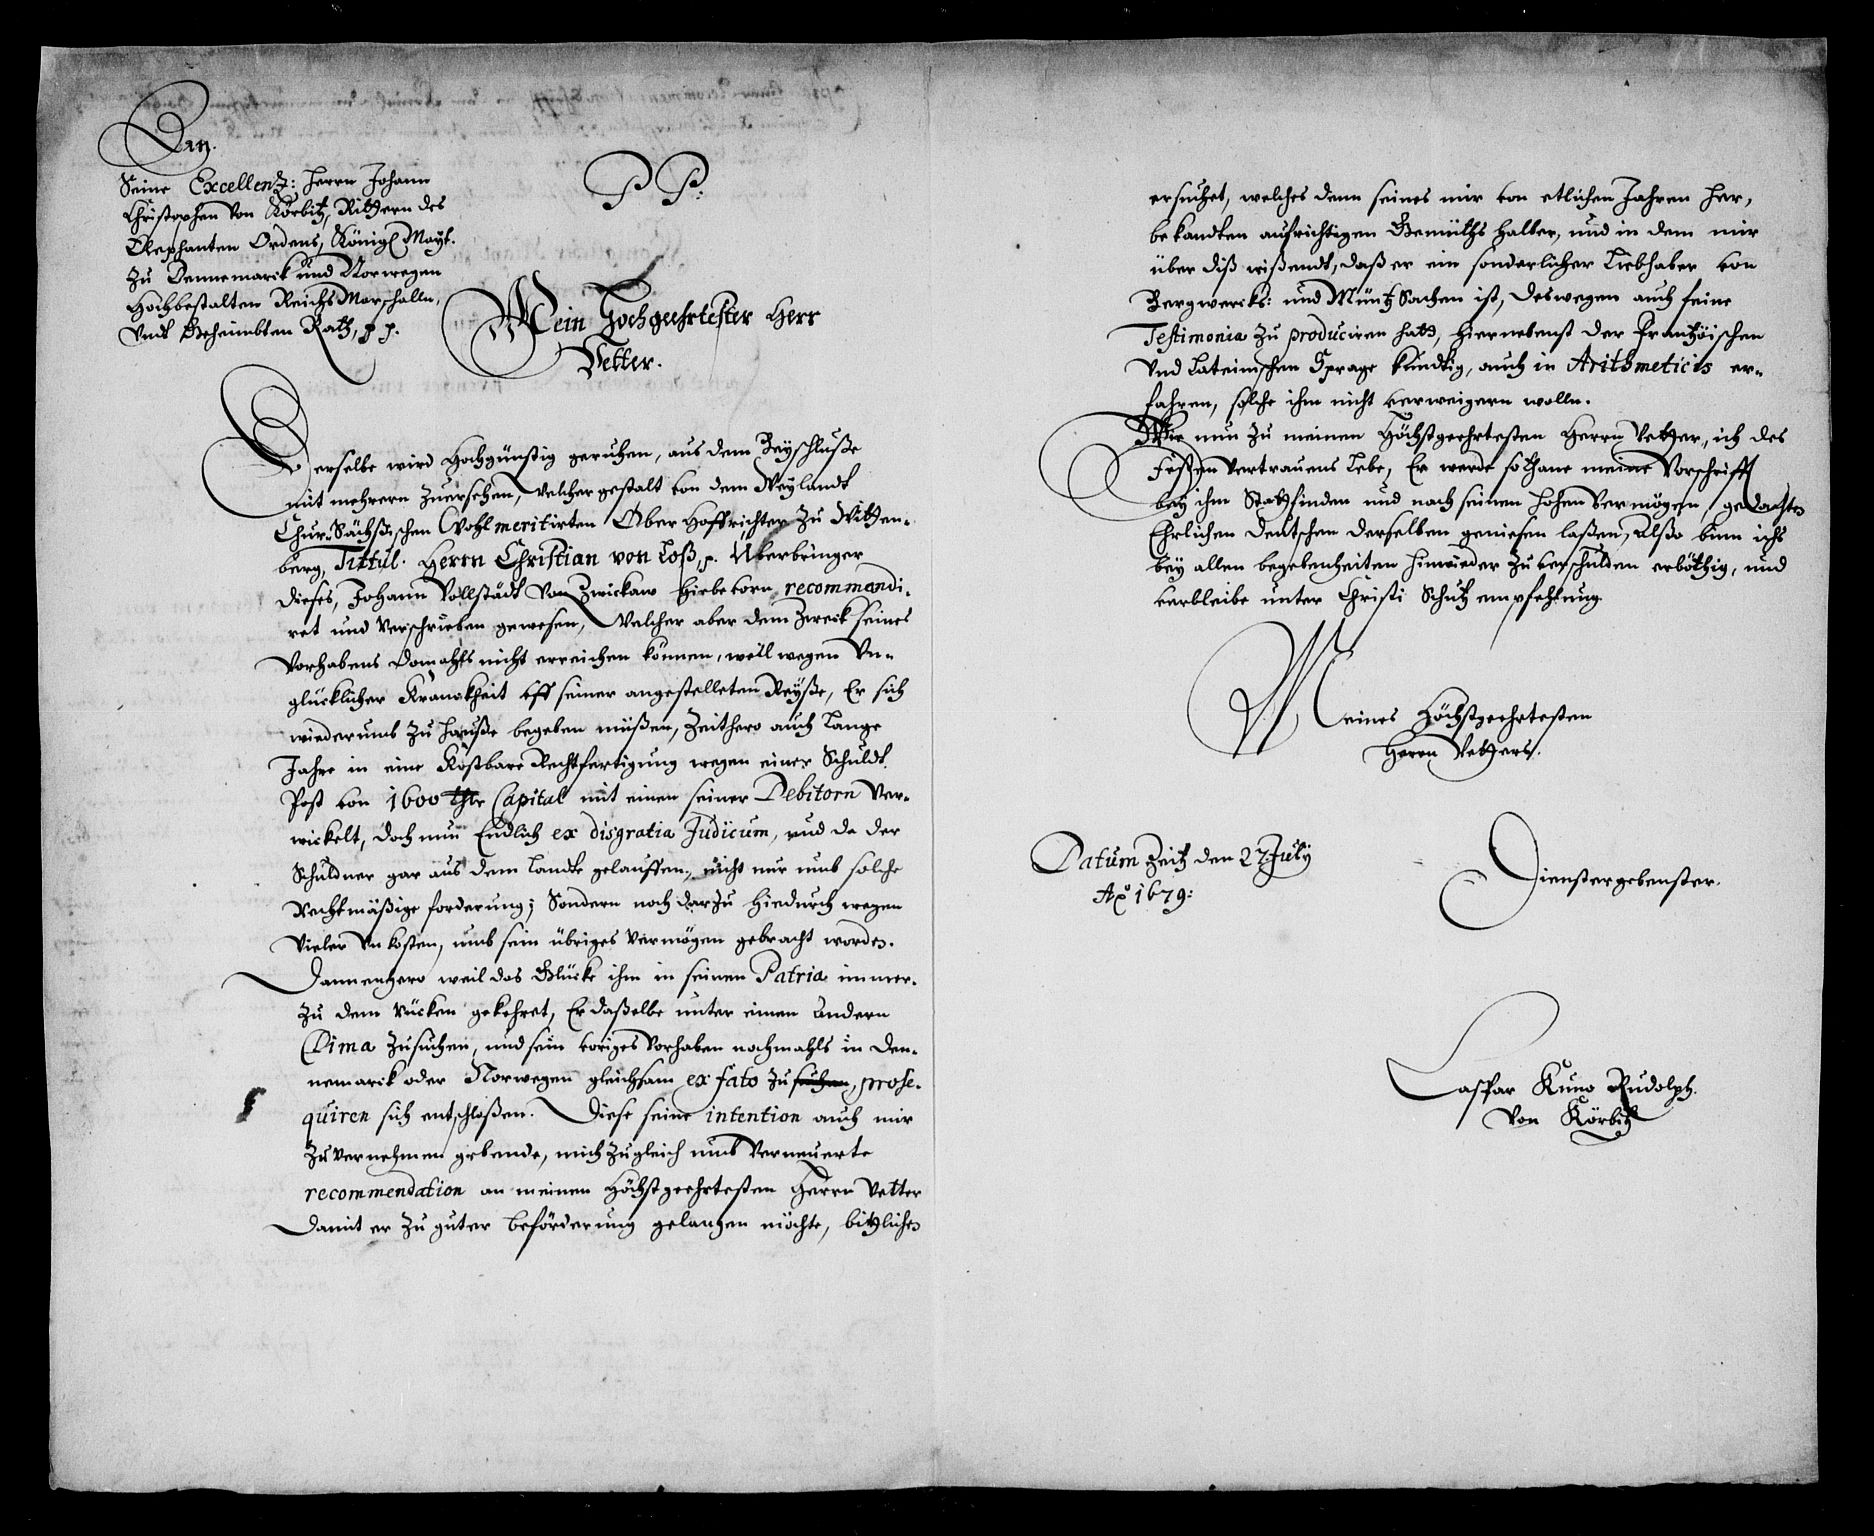 An.
Seine Excellentz: Herrn Johann
Christophen von Körbitz, Rittern des
Elephanten Ordens, Königl Mayt.
zu Dennemarck und Norwegen
Hochbestalten Reichs Marschalln,
Undt Geheimbten Rath, p p.
P P:
Mein Hochgeehrtester Herr
Vetter.
Derselbe wird Hochgünstig geruhen, aus dem Beyschluße
mit mehrern zuersehen, welcher gestalt von dem Weylandt
Chur-Sächsischen Wohlmeritirten Ober Hoffrichter zu Witten-
berg, Tittul. Herrn Christian von Loß, p. Überbringer
dieses, Johann Vollstädt von Zwickaw hiebevorn recommendi-
ret und verschrieben gewesen, Welcher aber dem Zweck seines
Vorhabens domahls nicht erreichen können, weil wegen Un-
glücklicher Kranckheit uff seiner angestelleten Reyße, Er sich
wiederumb zu hauße begeben müßen, Zeithero auch Lange
Jahre in eine Kostbare Rechtfertigung wegen einer Schuldt
Post von 1600 thlr Capital mit einen seiner Debitorn ver-
wickelt, doch nun Endlich ex disgratia Judicum, und da der
Schuldner gar aus dem Lande gelauffen, nicht nur umb solche
Rechtmäßige forderung; Sondern noch darzu hiedurch wegen
vieler Unkosten, umb sein übriges Vermögen gebracht worden.
Dannenhero weil das Glücke ihm in seinen Patria immer-
zu dem rücken gekehret, Er daßelbe unter einen andern
Clima zusuchen, und sein voriges Vorhaben nochmahls in Den-
nemarck oder Norwegen gleichsam ex fato zu suchen, prose-
quiren sich entschloßen. Diese seine intention auch mir
zuvernehmen gebende, mich zugleich umb verneuerte
recommendation an meinen Höchstgeehrtesten Herrn Vetter
damit er zu guter beförderung gelangen möchte, bittlichen
ersuchet, welches denn seines mir von etlichen Jahren her,
bekandten aufrichtigen Gemüths halber, und in dem mir
über diß wißendt, daß er ein sonderlicher Liebhaber von
Bergwercks: und Müntz Sachen ist, deswegen auch seine
Testimonia zu produciren hatt, hiernebenst der Frantzöischen
und Lateinischen Sprage kündig, auch in Arithmeticis er-
fahren, solche ihm nicht verweigern wolln.
Wie nun zu meinen Höchstgeehrtesten Herrn Vetter, ich des
Festen Vertrauens Lebe, Er werde sothane meine Vorschrifft
bey ihm Stattfinden und nach seinem hohen Vermögen, gedachten
Ehrlichen Deutschen derselben geniesen laßen, Alßo binn ichs
bey allen begebenheiten hinwieder zu verschulden erböthig, und
verbleibe unter Christi Schutz empfehlung
Meines Höchstgeehrtesten
Herrn Vetters.
Datum Zeitz den 27 July
Ao 1679:
Dienstergebenster.
Caspar Kuno Rudolph.
von Körbitz